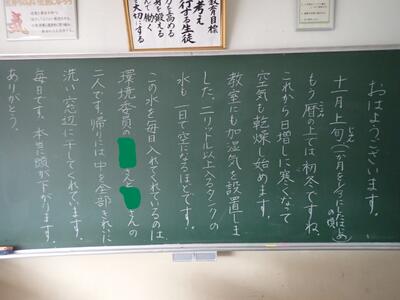 教育目標
考え
行する生徒
力を高める
ま鍛える
んで働く
大切にする
おはようございます。
十一月上旬(一か月を三つにしたはじめの頃)
じょん
もう暦の上では初冬ですね。
こよみ
これから日増しに寒くなって
空気も乾燥し始めます。
教室にも加湿気を設置しま
した。二リットル以上入るタンクの
水も一日で空になるほどです。
この水を毎日入れてくれているのは、
環境委員の さんと さんの
二人です。帰りには中を全部きれいに
洗い、窓辺に干してくれています。
毎日です。本当に頭が下がります。
ありがとう。